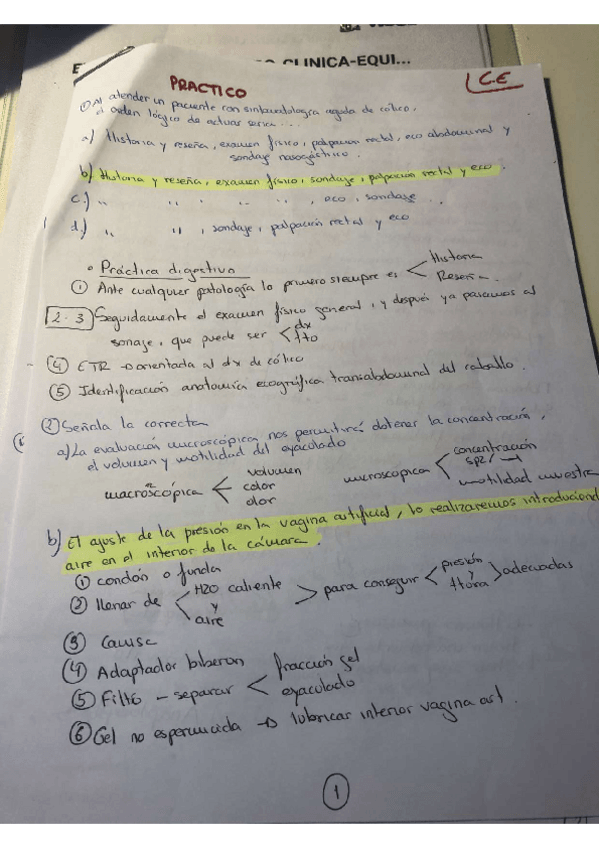 CLINICA-EQUI...
PRACTICO
C.E
① Al atender un paciente con sintomatología aguda de cólico,
el orden lógico de actuar sería...
a) Historia y reseña, examen físico, palpación rectal, eco abdominal y
sondaje nasogástrico.
b) Historia y reseña, examen físico, sondaje, palpación rectal y eco
c.) " " " " , eco, sondaje...
d.) " " , sondaje, palpación rectal y eco
• Práctica digestivo
① Ante cualquier patología lo primero siempre es < Historia
Reseña.
2.3 Seguidamente el examen físico general, y después ya pasamos al
sonaje, que puede ser < dx
tto
④ ETR → orientada al dx de cólico
⑤ Identificación anatomía ecográfica transabdominal del caballo.
② Señala la correcta
a) La evaluación microscópica nos permitirá obtener la concentración,
el volumen y motilidad del eyaculado
macroscópica < volumen
color
olor
microscópica < concentración
spz/
motilidad muestra
b) El ajuste de la presión en la vagina artificial, lo realizaremos introduciend
aire en el interior de la cámara.
① condón o funda
② llenar de < H2O caliente
y
aire
> para conseguir < presión
y
tura > adecuadas
③ Camisa
④ Adaptador biberon
⑤ Filtó – separar < fracción gel
eyaculado
⑥ Gel no espermicida → lubricar interior vagina art.
1